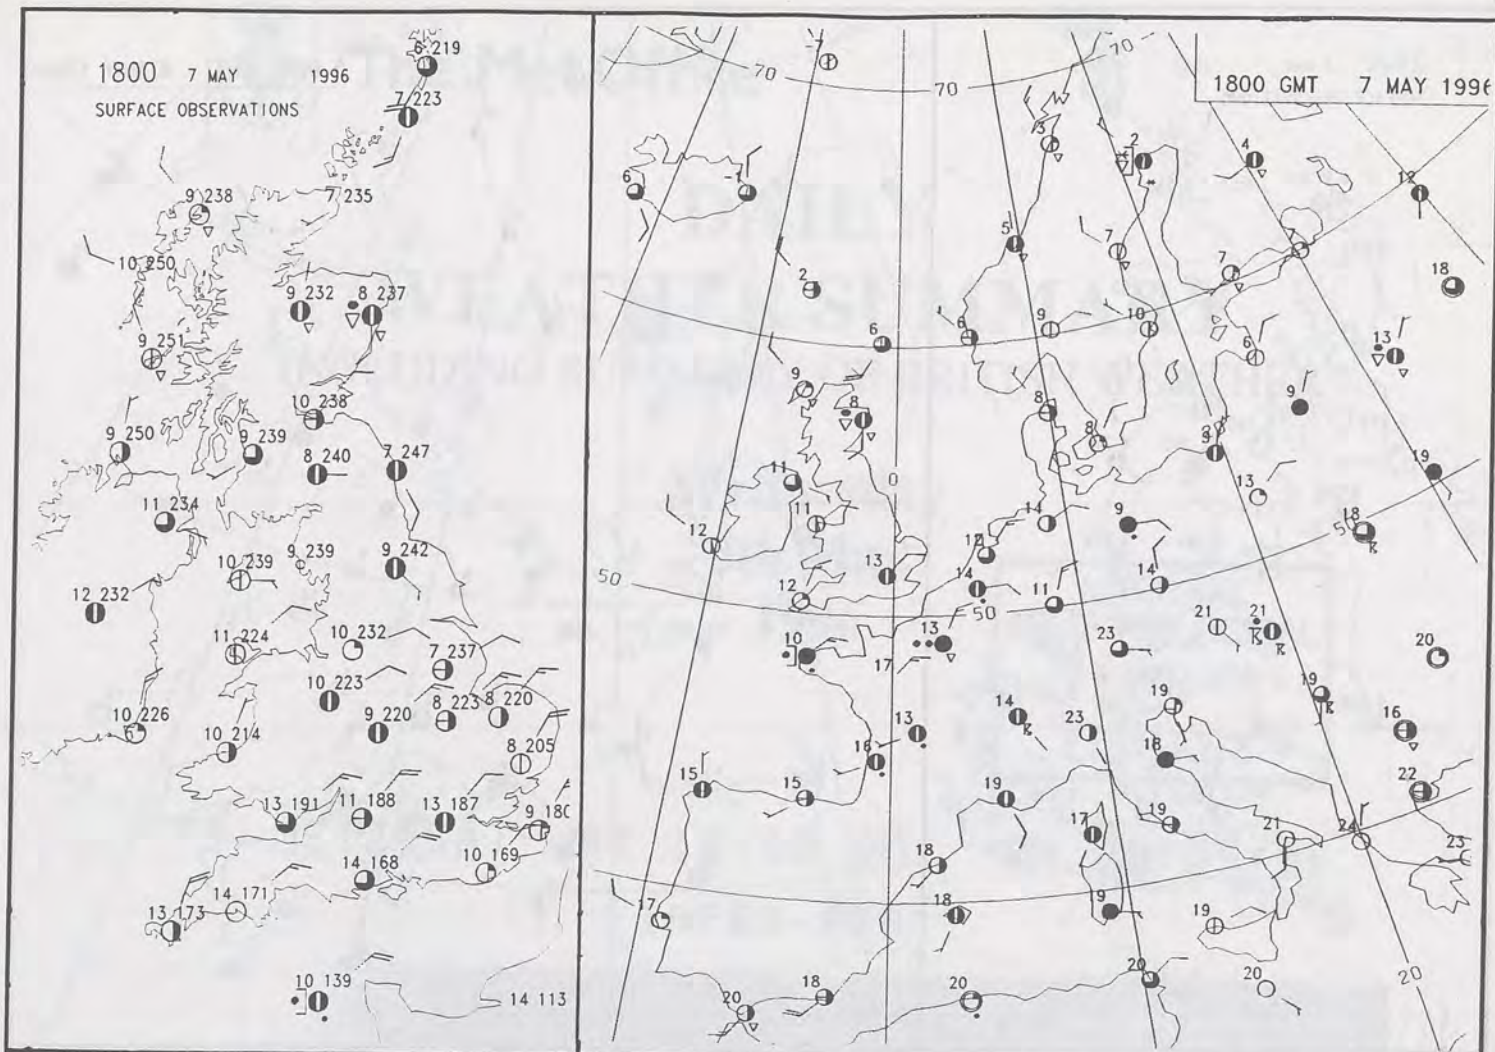 1800 7 MAY 1996
SURFACE OBSERVATIONS
6 219
7 223
9 238
7 235
10 250
9 232
8 237
9 251
10 238
9 250
9 239
8 240
7 247
11 234
10 239
9 239
9 242
12 232
11 224
10 232
7 237
10 223
8 223
8 220
10 226
10 214
9 220
8 205
13 191
11 188
13 187
9 180
14 168
10 169
14 171
13 173
10 139
14 113
1800 GMT 7 MAY 1996
-7
70
70
70
3
2
4
12
6
-1
5
7
7
7
18
2
6
6
9
10
6
13
9
8
8
8
9
9
19
0
11
11
14
9
13
18
12
12
13
14
14
11
50
50
10
13
17
23
21
21
20
19
19
16
13
14
23
18
16
15
15
19
22
17
19
21
24
23
18
17
18
9
19
20
18
20
20
20
20